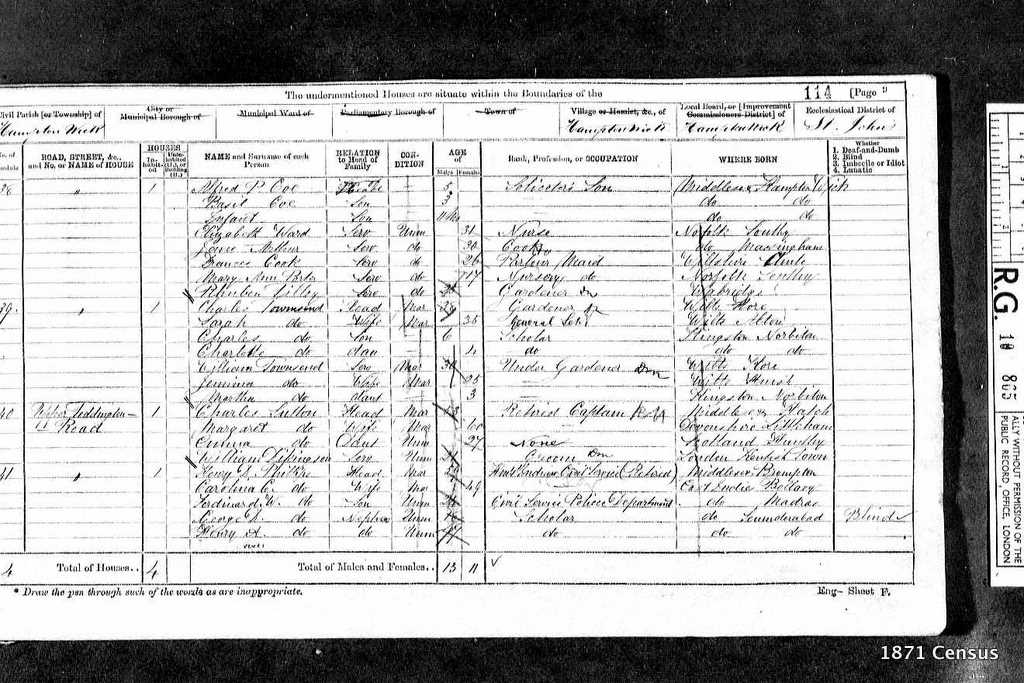 The undermentioned Houses are situate within the Boundaries of the 114 [Page 9
Civil Parish [or Township] of City or Municipal Borough of Municipal Ward of Parliamentary Borough of Town of Village or Hamlet, &c., of Local Board, or [Improvement Commissioners District] of Ecclesiastical District of
Hampton Wick Hampton Wick Hampton Wick St. John's
ROAD, STREET, &c., and No. or NAME of HOUSE HOUSES Inhabited Uninhabited (U.), or Building (B.) NAME and Surname of each Person RELATION to Head of Family CONDITION AGE of Males Females Rank, Profession, or OCCUPATION WHERE BORN Whether 1. Deaf-and-Dumb 2. Blind 3. Imbecile or Idiot 4. Lunatic
38 " 1 Alfred P. Coe 5 Solicitor's Son Middlesex Hampton Wick
Basil Coe Son 3 do do
Infant Son do do
Elizabeth Ward Serv Unm 31 Nurse Norfolk
Jane Arthur Serv do 30 Cook do Massingham
Frances Cook Serv do 26 Parlour Maid Wiltshire
Mary Ann Serv do 17 Nursery do Norfolk
Reuben Serv do Gardener Dom Uxbridge
39 " 1 Charles Townsend Head Mar Gardener Wilts Store
Sarah do Wife Mar 35 Wilts
Charles do Son 6 Scholar Kingston Norbiton
Charlotte do Dau 4 do do do
William Townsend Serv Mar 30 Under Gardener Dom Wilts Store
Jemima do Wife Mar 25 Wilts Hurst
Martha do Daur 3 Kingston Norbiton
40 Upper Teddington Road 1 Charles Sutton Head Mar Retired Captain Middlesex
Margaret do Wife Mar 60 Devonshire Littleham
Emma do Daur Unm 27 None Scotland Huntly
William Serv Unm Groom Dom London Kentish Town
41 " 1 Head Mar Civil Service (Retired) Middlesex Brompton
Caroline C. do Wife Mar 49 East Indies Bellary
Ferdinand W. do Son Unm Civil Service Police Department do Madras
George do Nephew Unm Scholar do Secunderabad Blind
Henry A. do do Unm do do do
4 Total of Houses.. 4 Total of Males and Females.. 13 11
* Draw the pen through such of the words as are inappropriate. Eng- Sheet F.
R.G. 10 865
ALLY WITHOUT PERMISSION OF THE
PUBLIC RECORD OFFICE, LONDON
1871 Census